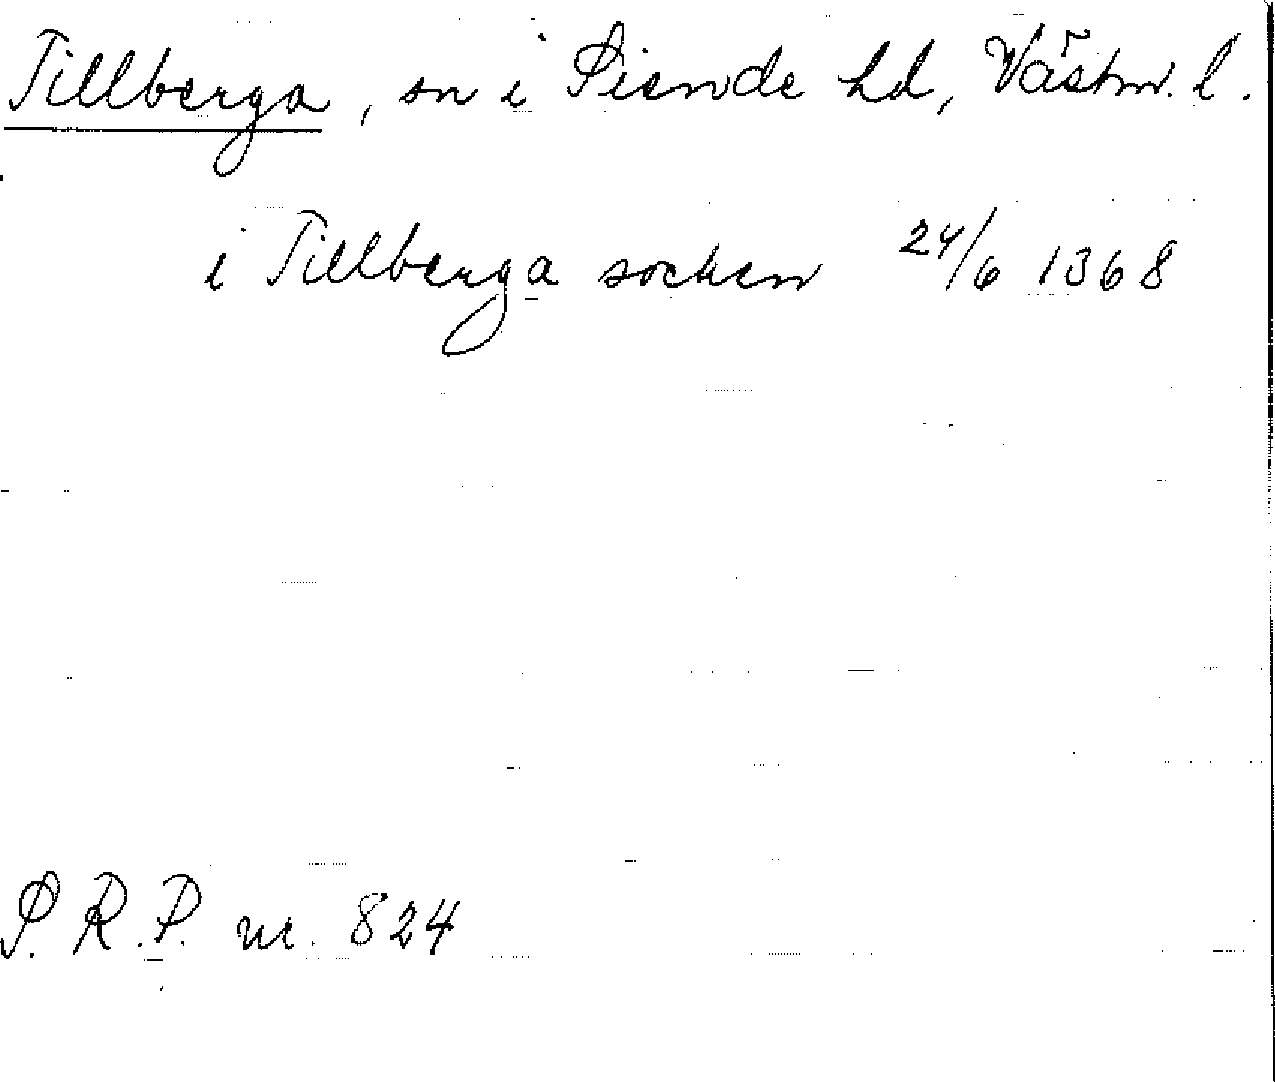 Tillberga, sn i Siende hd, Västm. l.
i Tillberga socken 24/6 1368
S. R. P. nr. 824